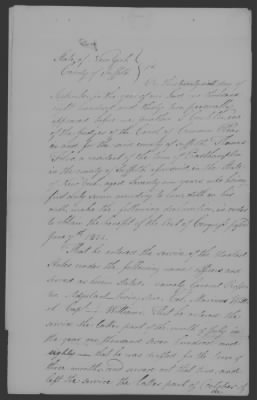 State of New York }
County of Suffolk } ss
On this twenty sixth day of
September in the year of our Lord one thousand
eight hundred and thirty two personally
appeared before me
of the judges of the Court of Common Pleas
in and for the said county of Suffolk Thomas
a resident of the town of Southampton
in the county of Suffolk aforesaid, in the State
of New York, aged Seventy one years who being
first duly sworn according to law doth on his
oath, make the following declaration, in order
to obtain the benefit of the Act of Congress passed
June 7th 1832.
That he entered the service of the United
States under the following named officers and
served as herein stated. namely
Col. Marinus Willet
Capt. Williams. That he entered the
service the latter part of the month of July in
the year one thousand seven hundred and
eighty — that he was enlisted for the term of
three months and served out that time, and
left the service the latter part of October of